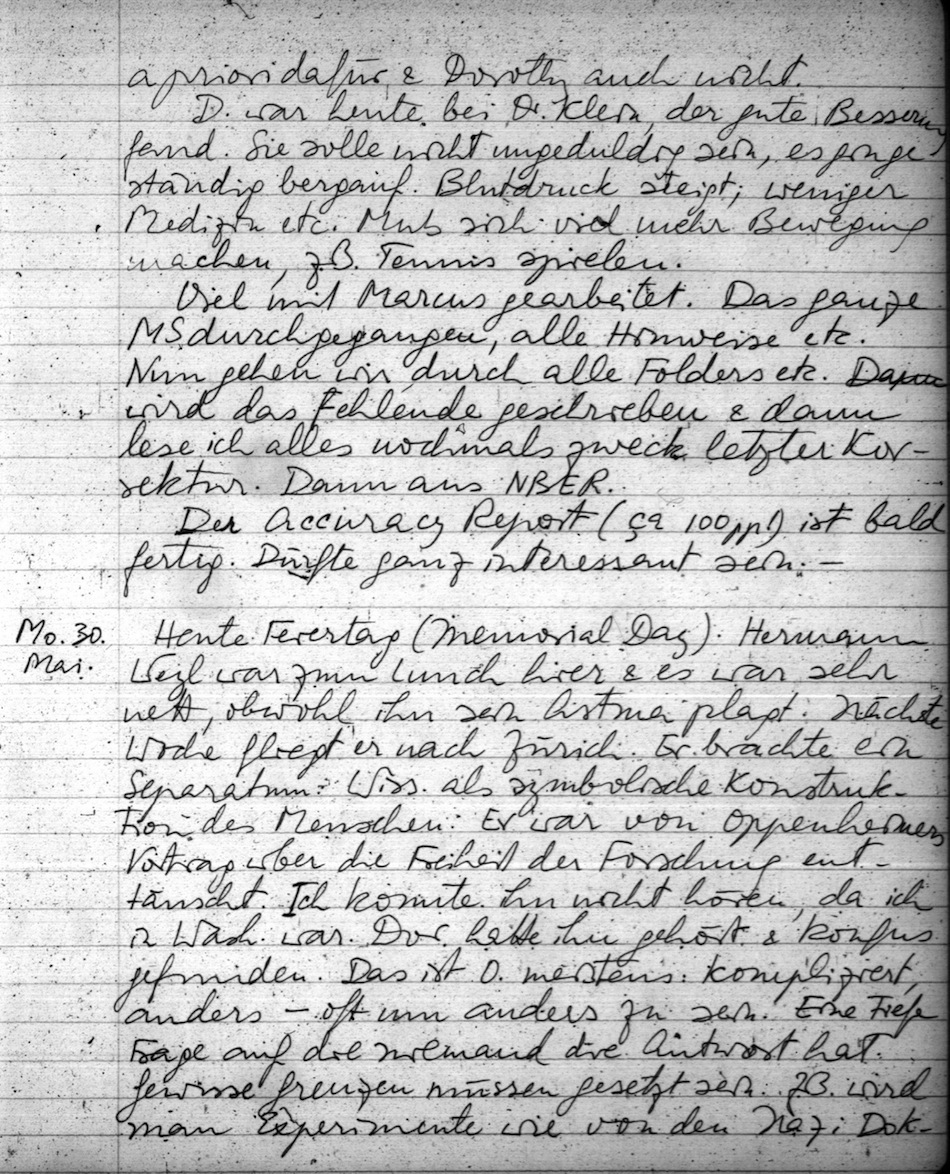 a priori dafür, & Dorothy auch nicht.
D. war heute bei Dr. Klein, der gute Besserung
fand. Sie solle nicht ungeduldig sein, es ginge
ständig bergauf. Blutdruck steigt; weniger
Medizin etc. Muß sich viel mehr Bewegung
machen, z.B. Tennis spielen.
Viel mit Marcus gearbeitet. Das ganze
MS durchgegangen, alle Hinweise etc.
Nun gehen wir durch alle Folders etc. Dann
wird das Fehlende geschrieben & dann
lese ich alles nochmals zweck letzter Kor-
rektur. Dann ans NBER.
Der Accuracy Report (ca 100 pp!) ist bald
fertig. Dürfte ganz interessant sein. –
Mo. 30. Heute Feiertag (Memorial Day). Hermann
Mai. Weyl war zum Lunch hier & es war sehr
nett, obwohl ihn sein Astma plagt. Nächste
Woche fliegt er nach Zürich. Er brachte ein
Separatum: Wiss. als symbolische Konstruk-
tion des Menschen. Er war von Oppenheimers
Vortrag über die Freiheit der Forschung ent-
täuscht. Ich konnte ihn nicht hören, da ich
in Wash. war. Dor. hatte ihn gehört & konfus
gefunden. Das ist O. meistens: kompliziert,
anders – oft um anders zu sein. Eine tiefe
Frage auf die niemand die Antwort hat.
Gewisse Grenzen müssen gesetzt sein. ZB. wird
man Experimente wie von den Nazi Dok-